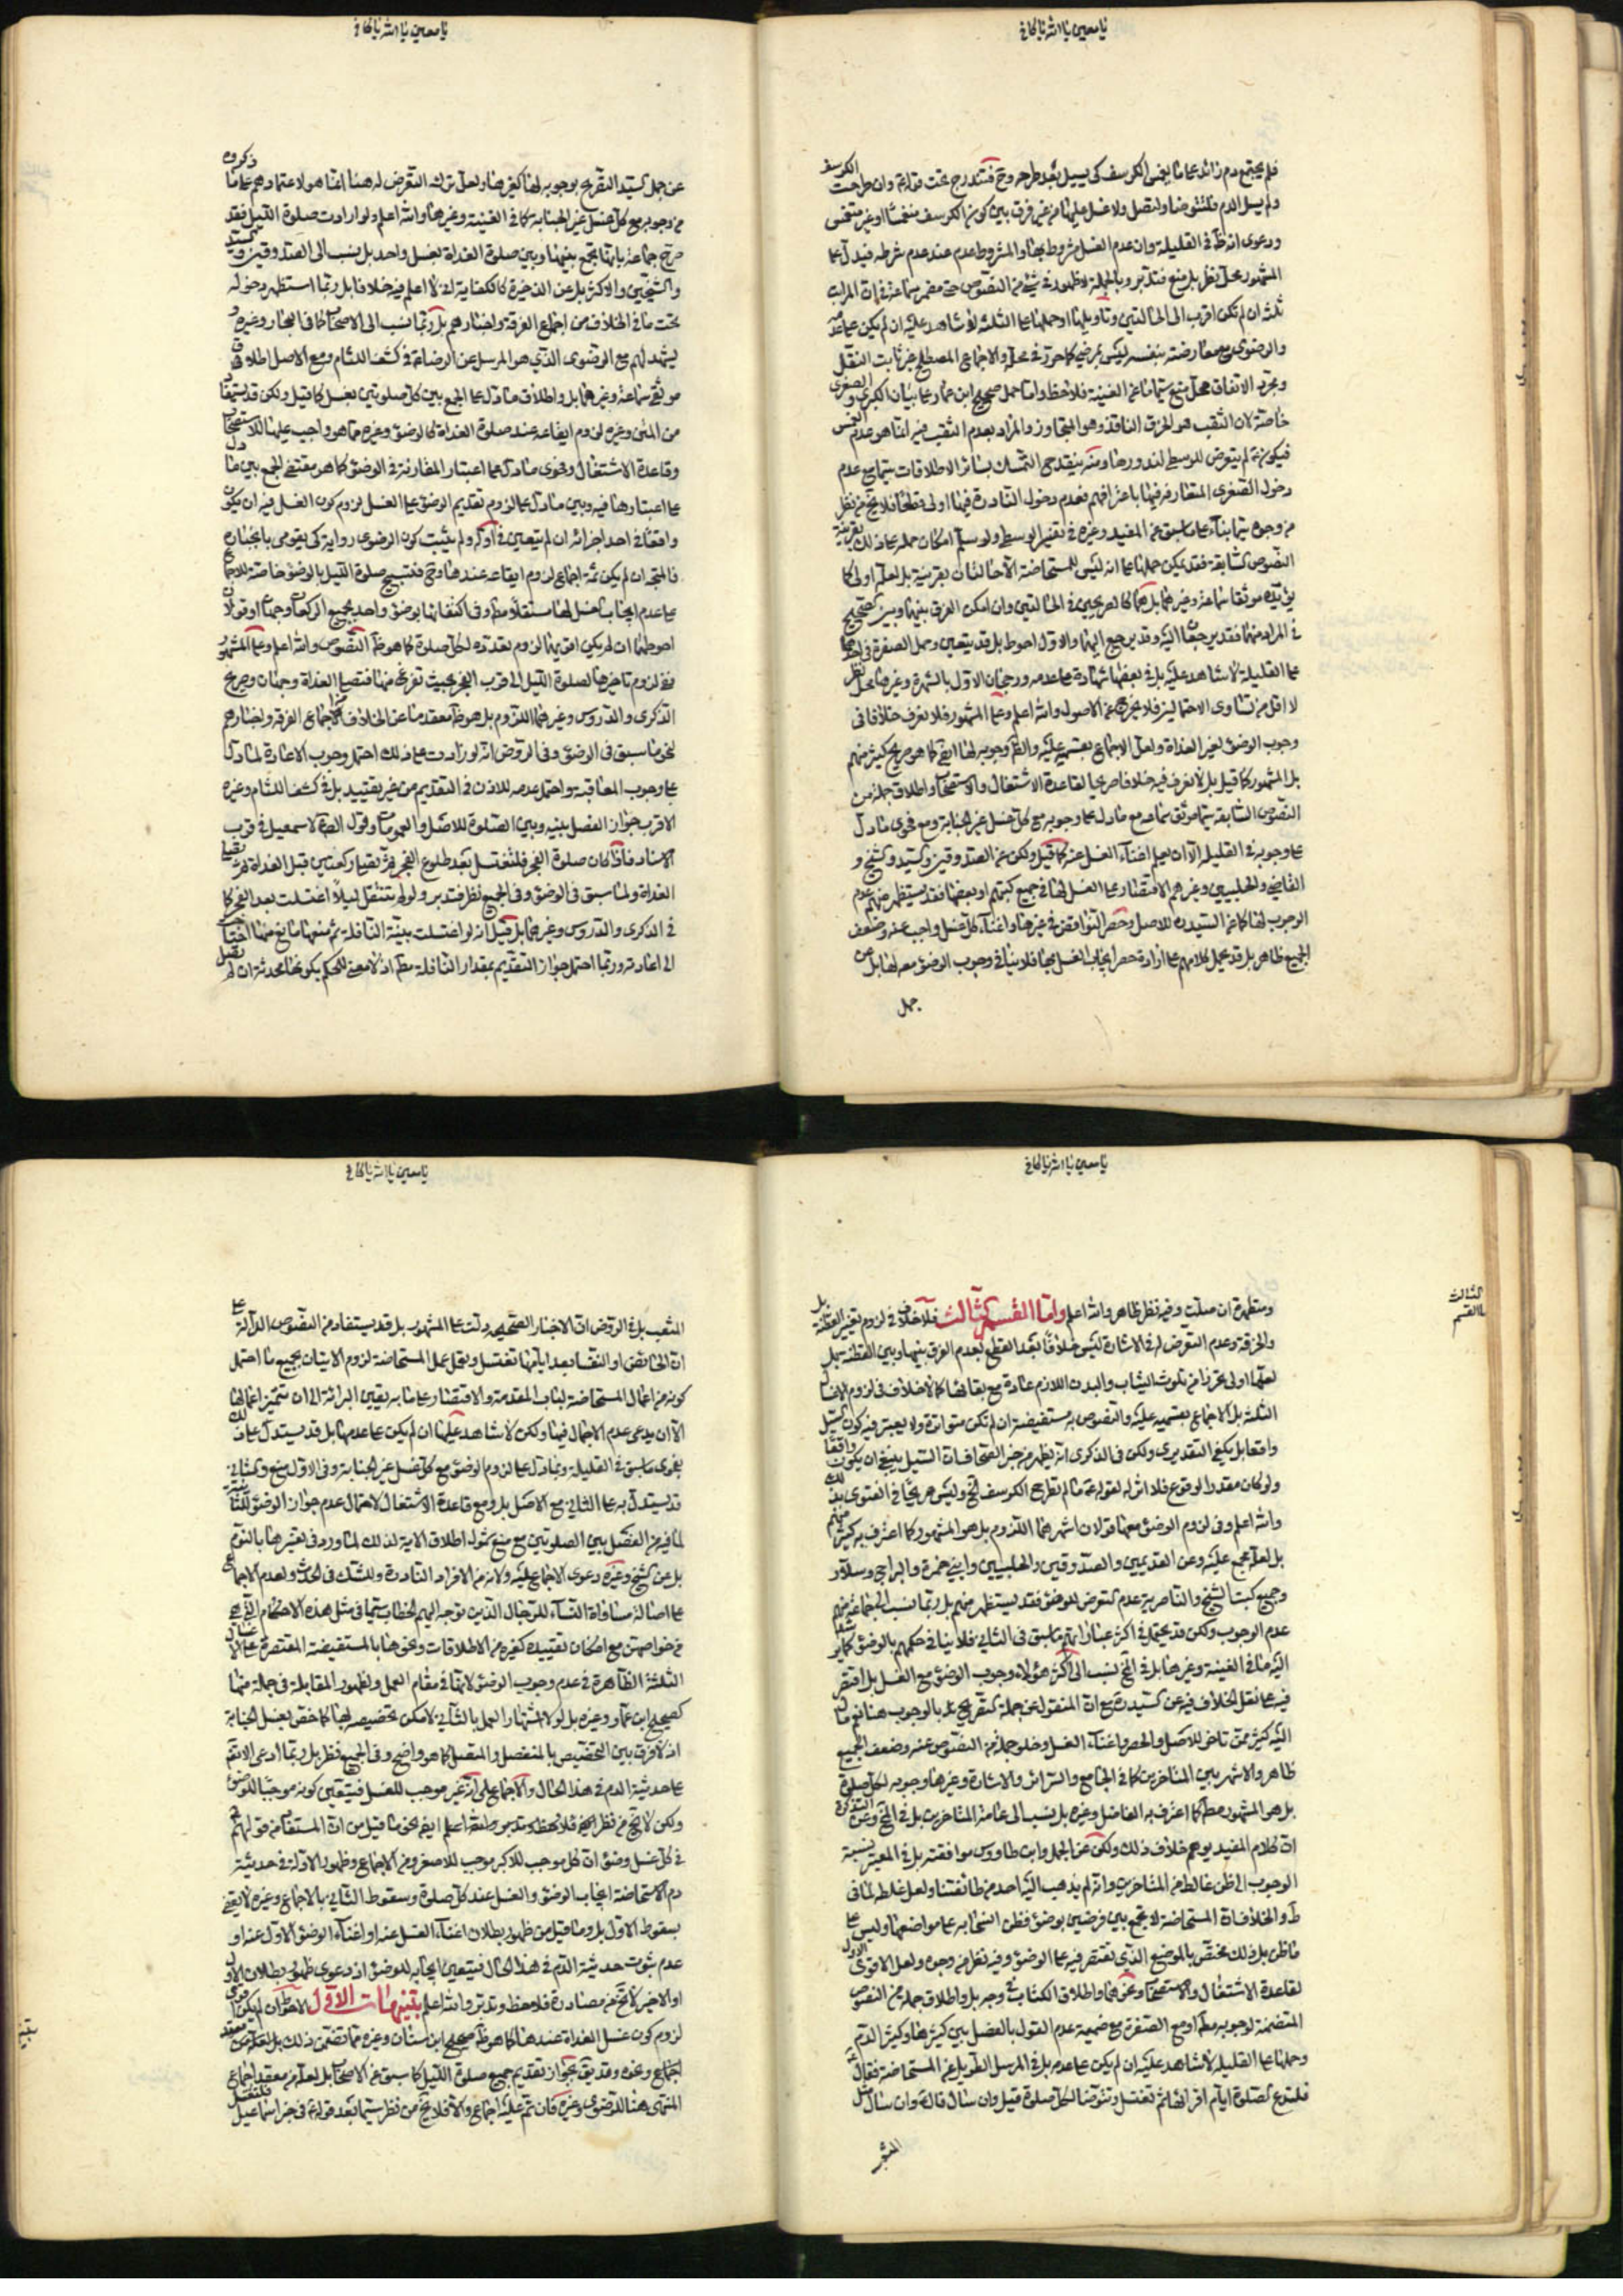 يا معين يا الله يا كافي
فلم يجتمع دم زائد عما يغمس الكرسف كي يسيل بعد طرحه وح فتندرج تحت قوله وان طرحت الكرسف
ولم يسل الدم فلتتوضا ولتصل ولا غسل عليها من غير فرق بين كون الكرسف منغمسا او غير منغمس
ودعوى انه في القليلة وان عدم الغسل مشروط بها والمشروط عدم عند عدم شرطه فيدل على
المشهور محل نظر بل منع فتدبر وبالجملة لا ظهور في شيء من النصوص حتى مضمر سماعة في ان المراتب
ثلث ان لم تكن اقرب الى الحالتين وتاويلها او حملها على الثلثة لا شاهد عليه ان لم يكن على عدمه
والرضوي مع معارضته بنفسه ليس بمرضي كما حرر في محله والاجماع المصطلح غير ثابت النقل
ومجرد الاتفاق محل منع سيما ما عن الغنية فلاحظ واما حمل صحيح ابن عمار على بيان الكبرى والصغرى
خاصة لان الثقب هو الخرق النافذ وهو المتجاوز والمراد بعدم الثقب فيه انما هو عدم الغمس
فيكون لم يتعرض للوسطى لندورها ومنه ينقدح التمسك بسائر الاطلاقات سيما مع عدم
دخول الصغرى المتعارفة فيها باعترافهم فعدم دخول النادرة فيها اولى قطعا فلا يخ من نظر
من وجوه سيما بناء على ما سبق عن المفيد وغيره في تفسير الوسطى ولو سلم امكان حمله على ذلك بقرينة
النصوص السابقة فقد يمكن حملها على انه ليس للمستحاضة الا حالتان بقرينته بل لعله اولى كما
يؤيده موثقا سماعة وغيرهما بل هما كالصريحين في الحالتين وان امكن الفرق بينهما وبين الصحيح
في المراد منهما فقد يرجعان اليه وقد يرجع اليهما والاول احوط بل قد يتعين وحمل الصفرة في احدهما
على القليلة لا شاهد عليه بل في بعضها شهادة على عدمه ورجحان الاول بالشهرة وغيرها محل نظر
لا اقل من تساوى الاحتمالين فلا يخرج عن الاصول والله اعلم وعلى المشهور فلا نعرف خلافا في
وجوب الوضوء لغير الغداة ولعل الاجماع بقسميه عليه والظ وجوبه لها ايض كما هو صريح كثير منهم
بل المشهور كما قيل بل لا نعرف فيه خلافا صريحا لقاعدة الاشتغال والاستصحاب واطلاق جملة من
النصوص السابقة سيما موثق سماعة مع ما دل على وجوبه مع كل غسل غير الجنابة ومع فحوى ما دل
على وجوبه في القليلة الا ان يعلم اغناء الغسل عنه كما قيل ولكن عن الصدوقين والسيد والشيخ و
القاضي والحلبيين وغيرهم الاقتصار على الغسل لها في جميع كتبهم او بعضها فقد يستظهر منهم عدم
الوجوب لها كما عن السيد للاصل وحصر النواقض في غيرها واغناء كل غسل واجب عنه وضعف
الجميع ظاهر بل قد يحمل كلامهم على ارادة حصر ايجاب الغسل بها فلا ينافي وجوب الوضوء معه لها بل عن
جمل
يا معين يا الله يا كافي
عن جمل السيد التصريح بوجوبه لها كغيرها ولعل ترك التعرض له هنا انما هو لاعتمادهم على ما ذكروه
من وجوبه مع كل غسل غير الجنابة كما في الغنية وغيرها والله اعلم ولو ارادت صلوة الليل فقد
صرح جماعة بانها تجمع بينها وبين صلوة الغداة بغسل واحد بل نسب الى الصدوقين والسيد
والشيخين والاكثر بل عن الذخيرة كالكفاية لا اعلم فيه خلافا بل ربما استظهر دخوله
تحت ما في الخلاف من اجماع الفرقة واخبارهم بل ربما نسب الى الاصحاب كما في البحار وغيره و
يشهد لهم مع الرضوي الذي هو المرسل عن الرضا في كشف اللثام ومع الاصل اطلاق
موثقي سماعة وغيرهما بل واطلاق ما دل على الجمع بين كل صلوتين بغسل كما قيل ولكن قد يستفاد
من المتن وغيره لزوم ايقاعه عند صلوة الغداة كالوضوء وغيره مما هو واجب عليها للاستصحاب
وقاعدة الاشتغال وفحوى ما دل على اعتبار المقارنة في الوضوء كما هو مقتضى الجمع بين ما دل
على اعتبارها فيه وبين ما دل على لزوم تقديم الوضوء على الغسل لزوم كون الغسل فيه ان يكون
واقعا في احد اجزائه ان لم يتعين في اوله ولم يثبت كون الرضوي رواية كي يقوى بانجباره
فالمتجه ان لم يكن ثمة اجماع لزوم ايقاعه عندها وح فتستبيح صلوة الليل بالوضوء خاصة للاجماع
على عدم ايجابها غسل لها مستقلا مط وفي اكتفائها بوضوء واحد لجميع الركعات وجهان او قولان
احوطهما ان لم يكن اقويهما لزوم تعدده لكل صلوة كما هو ظ النصوص والله اعلم وعلى المشهور
ففي لزوم تاخيرها لصلوة الليل الى قرب الفجر بحيث تفرغ منها فتصلي الغداة وجهان وصريح
الذكرى والدروس وغيرهما اللزوم بل هو ظ معقد ما عن الخلاف من اجماع الفرقة واخبارهم
لنحو ما سبق في الوضوء وفي الروض انه لو زادت على ذلك احتمل وجوب الاعادة لما دل
على وجوب المعاقبة واحتمل عدمه للاذن في التقديم من غير تقييد بل في كشف اللثام وغيره
الاقرب جواز الفصل بينه وبين الصلوة للاصل والعمومات وقول الص لاسمعيل في قرب
الاسناد فاذا كان صلوة الفجر فلتغتسل بعد طلوع الفجر ثم تصلي ركعتين قبل الغداة ثم تصلي
الغداة ولما سبق في الوضوء وفي الجميع نظر فتدبر ولو لم تتنفل ليلا اغتسلت بعد الفجر كما
في الذكرى والدروس وغيرهما بل قيل انه لو اغتسلت بنية النافلة ثم منعها مانع منها افتقرت
الى اعادته وربما احتمل جواز التقديم بمقدار النافلة مط اذ لا معنى للحكم بكونها محدثة ان لم تصل
يا معين يا الله يا كافي
الثالث
ما القسم
ومتطهرة ان صلت وفيه نظر ظاهر والله اعلم واما القسم الثالث فلا خلاف في لزوم تغيير القطنة بل
والخرقة وعدم التعرض له في الاشارة ليس خلافا بعد القطع بعدم الفرق بينها وبين القطنة بل
لعلها اولى تحرزا من تلوث الثياب والبدن اللازم عادة مع بقائها كما لا خلاف في لزوم الاغسال
الثلثة بل الاجماع بقسميه عليه والنصوص به مستفيضة ان لم تكن متواترة ولا يعتبر فيه كون السيل
واقعا بل يكفي التقديري ولكن في الذكرى انه يظهر من خبر الصحاف ان السيل ينبغي ان يكون واقعا
ولو كان مقدر الوقوع فلا اثر له لقوله ما لم تطرح الكرسف الخ وليس صريحا في الفتوى بذلك
والله اعلم وفي لزوم الوضوء معها قولان اشهرهما اللزوم بل هو المشهور كما اعترف به كثير منهم
بل لعله مجمع عليه وعن القديمين والصدوقين والحلبيين وابني حمزة والبراج وسلار
وجميع كتب الشيخ والناصرية عدم التعرض للوضوء فقد يستظهر منهم بل ربما نسب الى جماعة منهم
عدم الوجوب ولكن قد يحتمل في اكثر عباراتهم ما سبق في الثاني فلا ينافي حكمهم بالوضوء كما يرشد
اليه ما في الغنية وغيرها بل في الخ نسب الى اكثر هؤلاء وجوب الوضوء مع الغسل بل اقتصر
فيه على نقل الخلاف فيه عن السيد مع ان المنقول عن جمله التصريح بالوجوب هنا نعم مال
اليه كثير ممن تاخر للاصل والحصر واغناء الغسل وخلو جملة من النصوص عنه وضعف الجميع
ظاهر والاشهر بين المتاخرين كما في الجامع والسرائر والاشارة وغيرها وجوبه لكل صلوة
بل هو المشهور مط كما اعترف به الفاضل وغيره بل نسب الى عامة المتاخرين بل في الخ وغيره
ان كلام المفيد يوهم خلاف ذلك ولكن عن الجمل وابن طاووس موافقته بل في المعتبر نسبة
الوجوب الى ظن غالط من المتاخرين وانه لم يذهب اليه احد من طائفتنا ولعل غلطه لما في
ط والخلاف ان المستحاضة لا تجمع بين فرضين بوضوء فظن انسحابه على مواضعها وليس على
ما ظن بل ذلك مختص بالموضع الذي تقتصر فيه على الوضوء وفيه نظر من وجوه ولعل الاقوى الاول
لقاعدة الاشتغال والاستصحاب ونحوهما واطلاق الكتاب في وجه بل واطلاق جملة من النصوص
المتضمنة لوجوبه مط او مع الصفرة مع ضميمة عدم القول بالفصل بين كثيرها وكثير الدم
وحملها على القليلة لا شاهد عليه ان لم يكن على عدمه بل في المرسل الطويل عن المستحاضة فقال
فلتدع الصلوة ايام اقرائها ثم تغتسل وتتوضا لكل صلوة قيل وان سال قال وان سال مثل
المثعب
يا معين يا الله يا كافي
المثعب بل في الروض ان الاخبار الصحيحة دلت على المشهور بل قد يستفاد من النصوص الدالة على
ان الحائض او النفساء بعد ايامها تغتسل وتعمل عمل المستحاضة لزوم الاتيان بجميع ما احتمل
كونه من اعمال المستحاضة لباب المقدمة والاقتصار على ما به يقين البرائة الى ان تتميز اعمالها
الا ان يدعى عدم الاجمال فيها ولكن لا شاهد عليها ان لم يكن على عدمها بل قد يستدل على ذلك
بفحوى ما سبق في القليلة وبما دل على لزوم الوضوء مع كل غسل غير الجنابة وفي الاول منع وكالثاني
قد يستدل به على الثاني مع الاصل بل ومع قاعدة الاشتغال لاحتمال عدم جواز الوضوء للثانية
لما فيه من الفصل بين الصلوتين مع منع شمول اطلاق الاية لذلك لما ورد في تفسيرها بالنوم
بل عن الشيخ وغيره دعوى الاجماع عليه ولانه من الافراد النادرة وللشك في الحدث ولعدم الاجماع
على اصالة مساواة النساء للرجال الذين توجه اليهم الخطاب سيما في مثل هذه الاحكام التي هي
من خواصهن مع امكان تقييده كغيره من الاطلاقات ونحوها بالمستفيضة المقتصرة على الاغسال
الثلثة الظاهرة في عدم وجوب الوضوء لانها في مقام العمل ولظهور المقابلة في جملة منها
كصحيح ابن عمار وغيره بل لولا اشتهار العمل بالثاني لامكن تخصيصه بها كما خص بغسل الجنابة
اذ لا فرق بين التخصيص بالمنفصل والمتصل كما هو واضح وفي الجميع نظر بل ربما ادعي الاتفاق
على حدثية الدم في هذا الحال والاجماع على انه غير موجب للغسل فيتعين كونه موجبا للوضوء
ولكن لا يخ من نظر فلاحظ وتدبر والله اعلم ايض نحو ما قيل من ان المستفاد من قولهم
في كل غسل وضوء ان كل موجب للاكبر موجب للاصغر ومن الاجماع وظهور الادلة في حدثية
دم الاستحاضة ايجاب الوضوء والغسل عند كل صلوة وسقوط الثاني بالاجماع وغيره لا يقضي
بسقوط الاول بل وما قيل من ظهور بطلان اغناء الغسل عنه او اغناء الوضوء الاول عنه او
عدم ثبوت حدثية الدم في هذا الحال فيتعين ايجابه للوضوء اذ دعوى ظهور بطلان الاول
او الاخير لا تخ من مصادرة فلاحظ وتدبر والله اعلم تنبيهات الاول الاحوط ان لم يكن اقوى
لزوم كون غسل الغداة عندها كما هو ظ صحيح ابن سنان وغيره مما تضمن ذلك بل لعله من معقد
اجماع وغيره وقد يق بجواز تقديم جميع صلوة الليل كما سبق عن الاصحاب بل لعله من معقد اجماع
المنتهى هنا للرضوي وغيره فان تم عليه اجماع والا فلا يخ من نظر سيما بعد قوله في خبر اسماعيل فلتغتسل